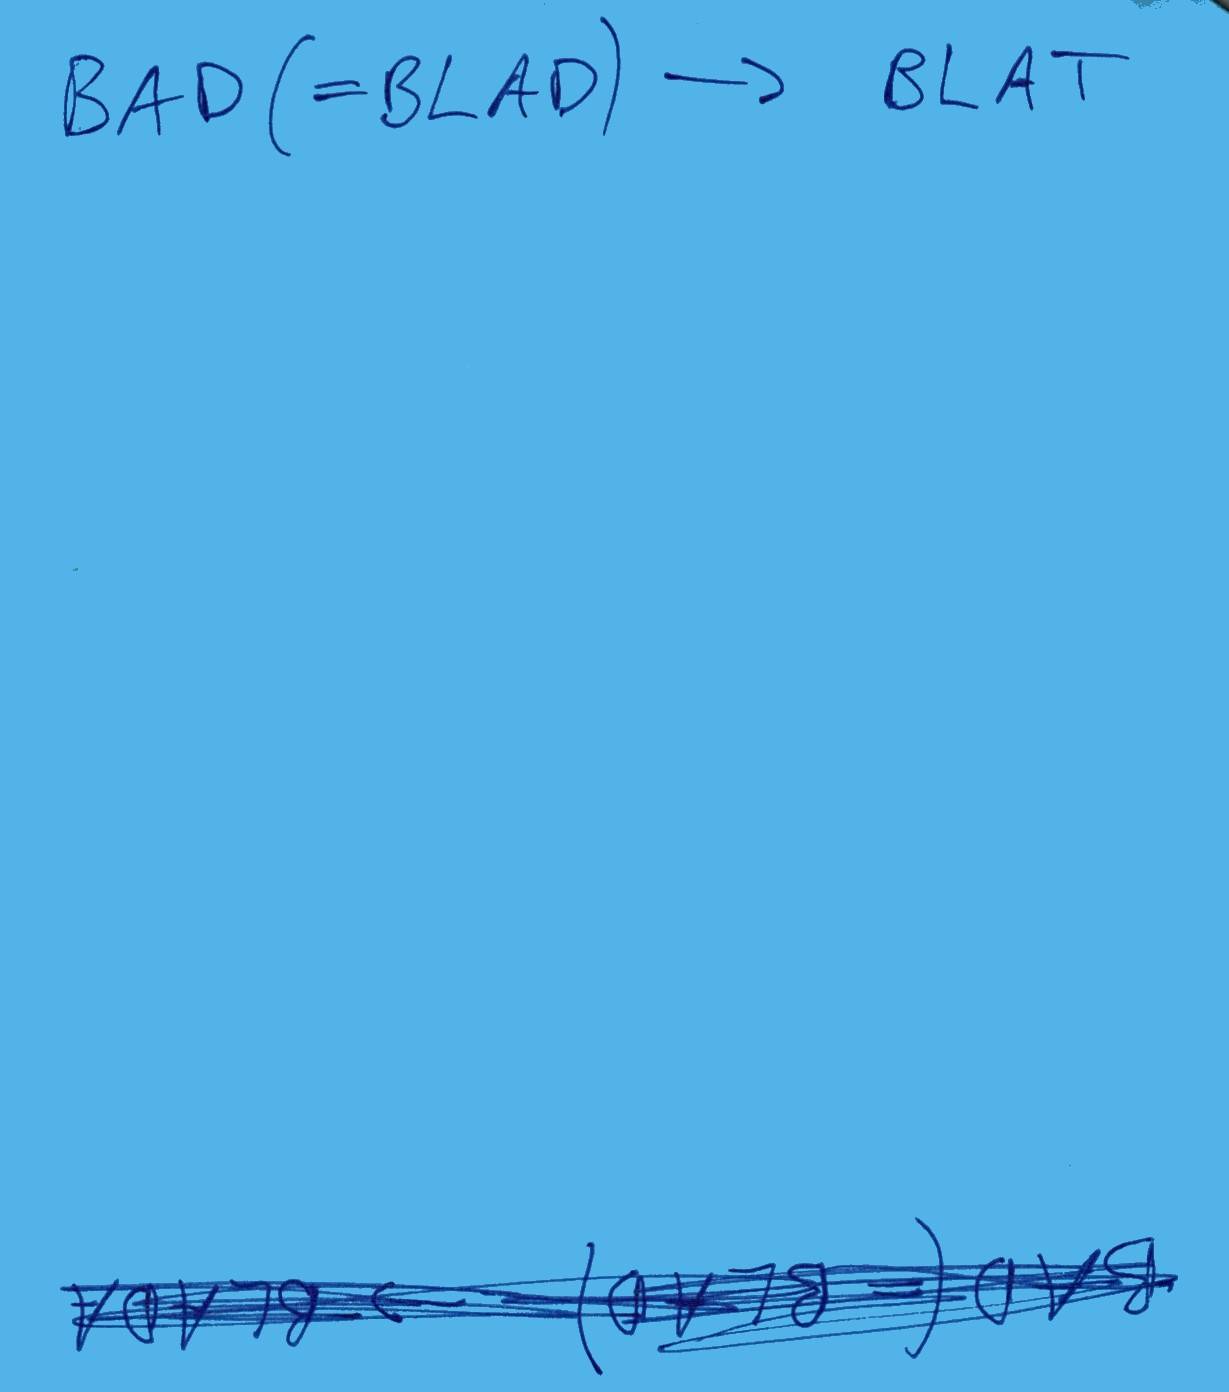 BAD (=BLAD) → BLAT
BAD (= BLAD) → BLADA